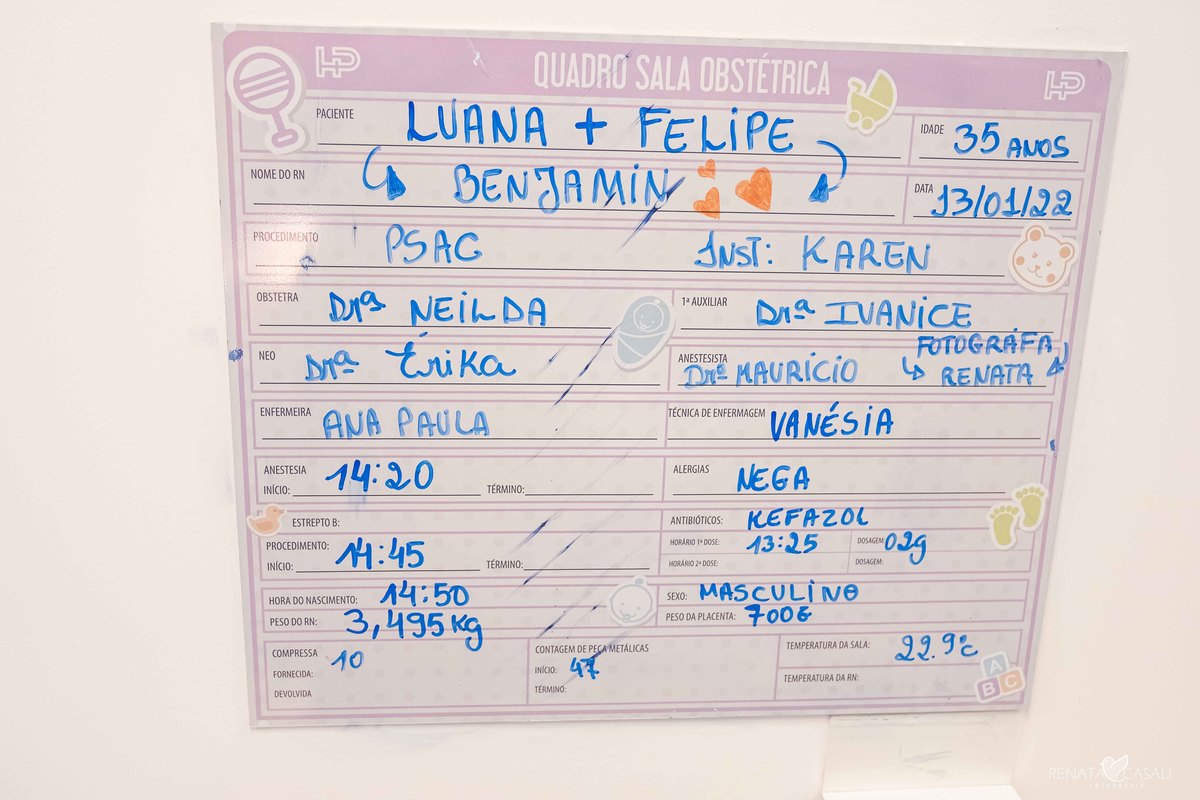 HP QUADRO SALA OBSTÉTRICA HP
PACIENTE LUANA + FELIPE
IDADE 35 ANOS
NOME DO RN BENJAMIN
DATA 13/01/22
PROCEDIMENTO PSAC INST: KAREN
OBSTETRA Drª NEILDA
1ª AUXILIAR Drª IVANICE
NEO Drª Érika
ANESTESISTA Drº MAURICIO
FOTOGRÁFA
RENATA
ENFERMEIRA ANA PAULA
TÉCNICA DE ENFERMAGEM VANÉSIA
ANESTESIA
INÍCIO: 14:20 TÉRMINO:
ALERGIAS NEGA
ESTREPTO B:
ANTIBIÓTICOS: KEFAZOL
HORÁRIO 1ª DOSE: 13:25 DOSAGEM: 02g
HORÁRIO 2ª DOSE: DOSAGEM:
PROCEDIMENTO:
INÍCIO: 14:45 TÉRMINO:
HORA DO NASCIMENTO: 14:50
SEXO: MASCULINO
PESO DO RN: 3,495 Kg
PESO DA PLACENTA: 700G
COMPRESSA 10
FORNECIDA:
DEVOLVIDA
CONTAGEM DE PEÇA METÁLICAS
INÍCIO: 47
TÉRMINO:
TEMPERATURA DA SALA: 22.9°c
TEMPERATURA DA RN:
A
B C
RENATA CASALI
FOTOGRAFIA